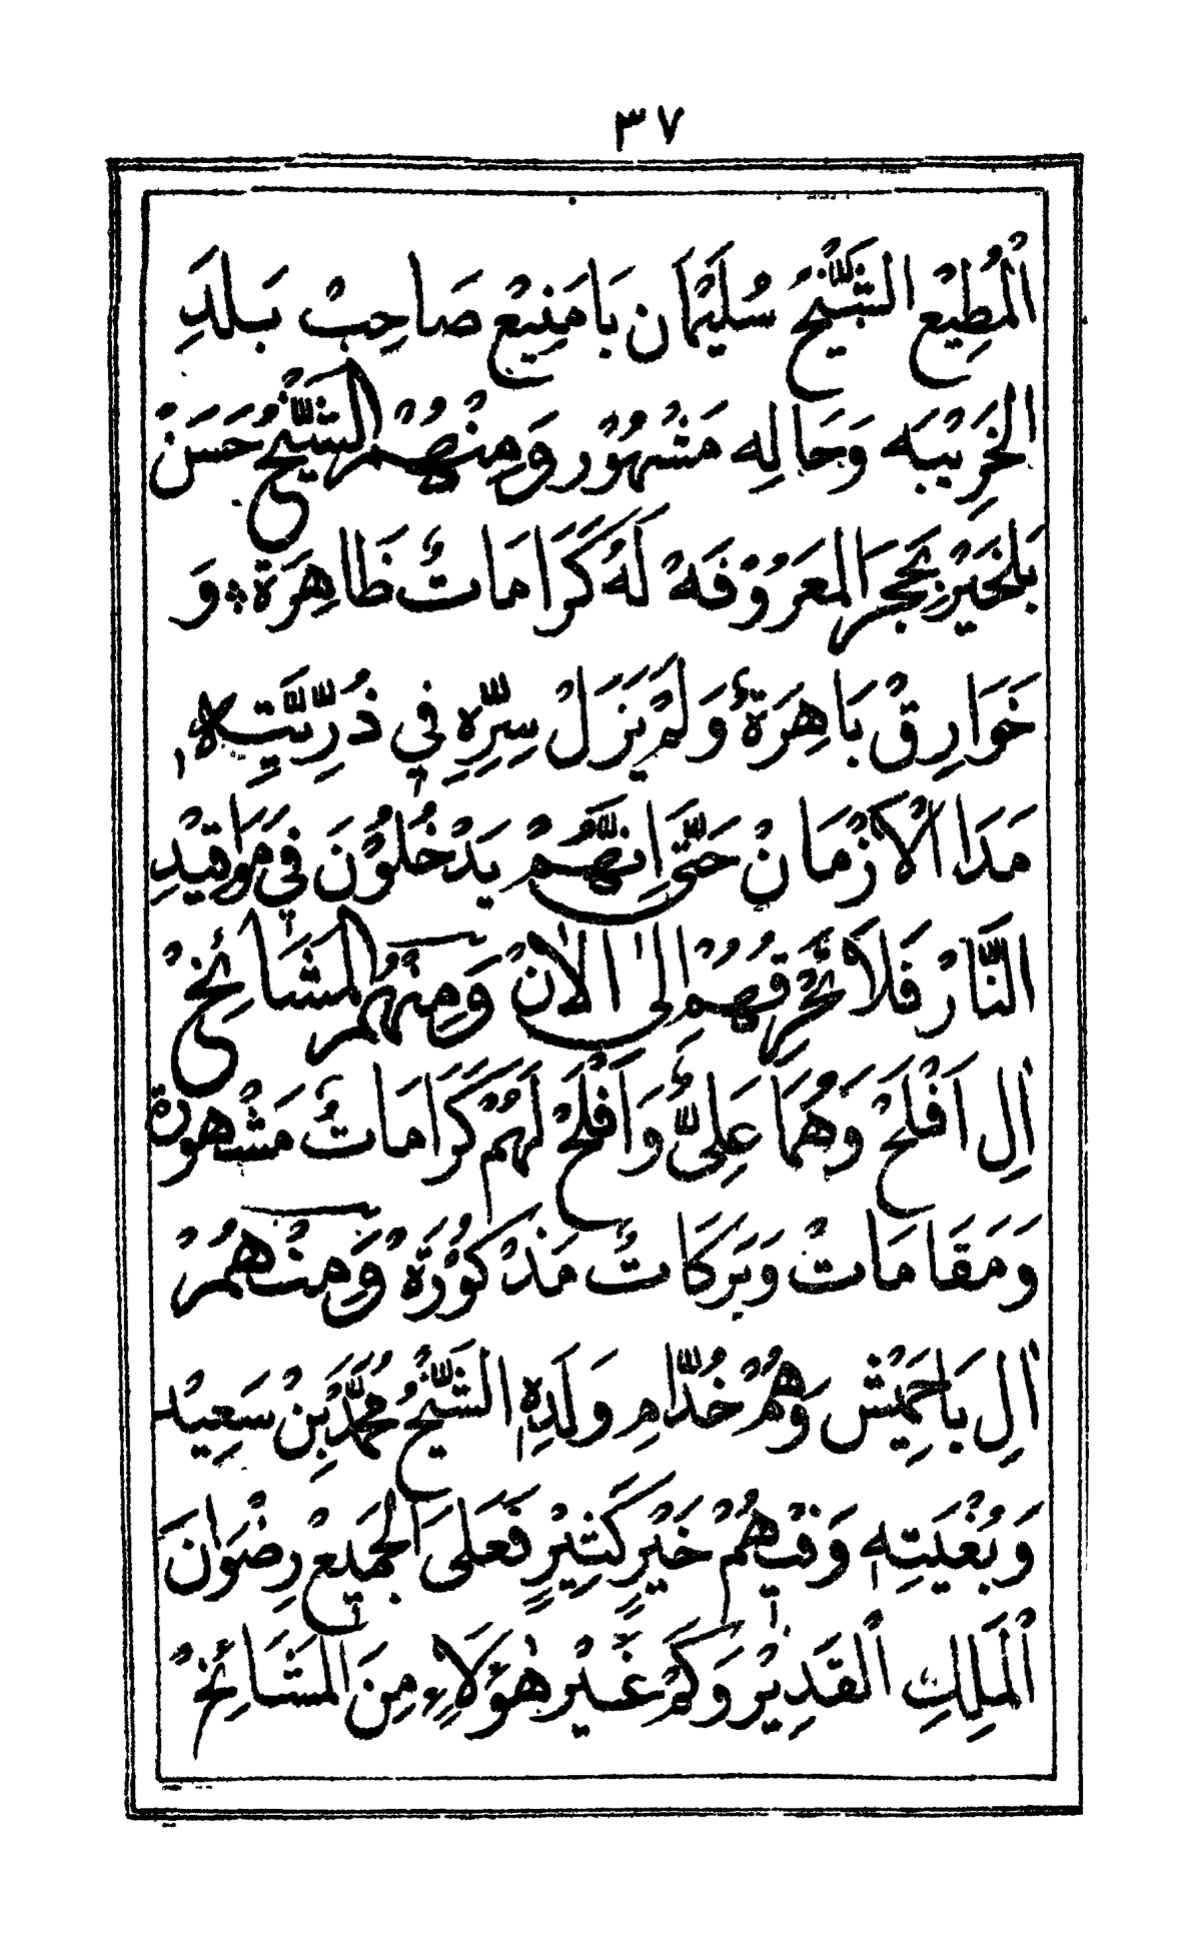 ٣٧
اْلْمُطِيْعِ الشَّيْخُ سُلَيْمَان بَا مَنِيْعِ صَاحِبْ بَلَدِ
الخَرِيْبَه وَحَالِه مَشْهُوْر وَمِنْهُمْ الشَّيْخُ حَسَنْ
بَلخَيْرْ بِحَجَرِ المَعَرُوْفَهْ لَهُ كَرَامَاتٌ ظَاهِرَة وَ
خَوَارِقْ بَاهِرَةٌ وَلَمْ يَزَلْ سِرِّهِ فِي ذُرِّيَّتِهِ
مَدَا الْاَزْمَانْ حَتَّى اِنَّهُمْ يَدْخُلُوْنَ فِي مَوَاقِيْدِ
النَّارْ فَلَا تَحْرِقهُمْ اِلىٰ الاٰنْ وَمِنْهُمُ المَشَائِخْ
اٰلِ اَفْلَحْ وَهُمَا عَلِيٌّ وَاَفْلَحْ لَهُمْ كَرَامَاتٌ مَشْهوْرة
وَمَقَامَاتٌ وَبَرَكَاتٌ مَذْكُوْرَةْ وَمِنْهُمْ
اٰلِ بَاحَمِيْش وَهُمْ خُدَّامِ وَلَدِهِ الشَّيْخُ مُحَمَّدْ بِنْ سَعِيْد
وَبُغْيَتِهِ وَفِيْهُمْ خَيْرٍ كَثِيْرٍ فَعَلَى الْجَمِيْعْ رِضْوَانَ
اْلْمَلِكِ اْلْقَدِيْرْ وَكَمْ غَيْرْ هٰؤلَاءِ مِنَ الْمَشَائِخْ